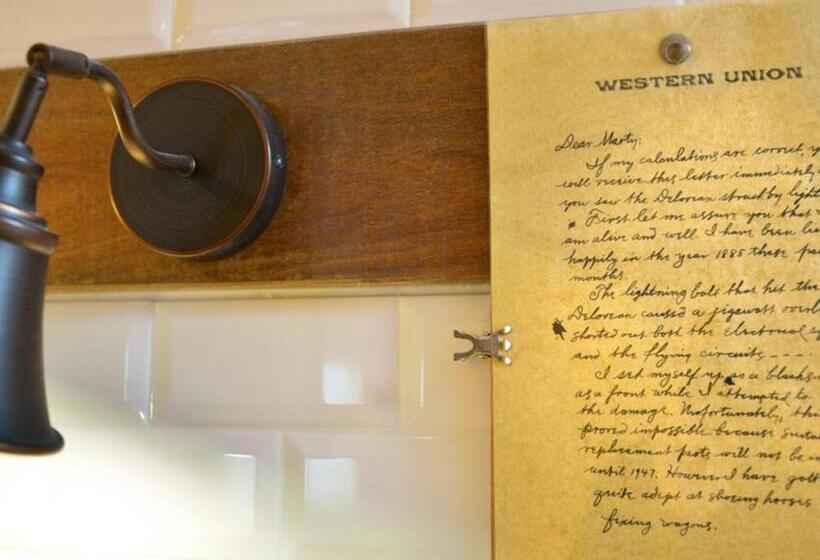 WESTERN UNION
Dear Marty:
If my calculations are correct,
will receive this letter immediately
you saw the Delorean struck by
First let me assure you that
am alive and well. I have been
happily in the year 1885 these
months.
The lightning bolt that hit the
Delorean caused a jigawatt
shorted out both the electrical
and the flying circuits ----
I set myself up as a
as a front while I attempted to
the damage. Unfortunately, this
proved impossible because
replacement parts will not be
until 1947. However I have
quite adept at shoeing horses
fixing wagons.